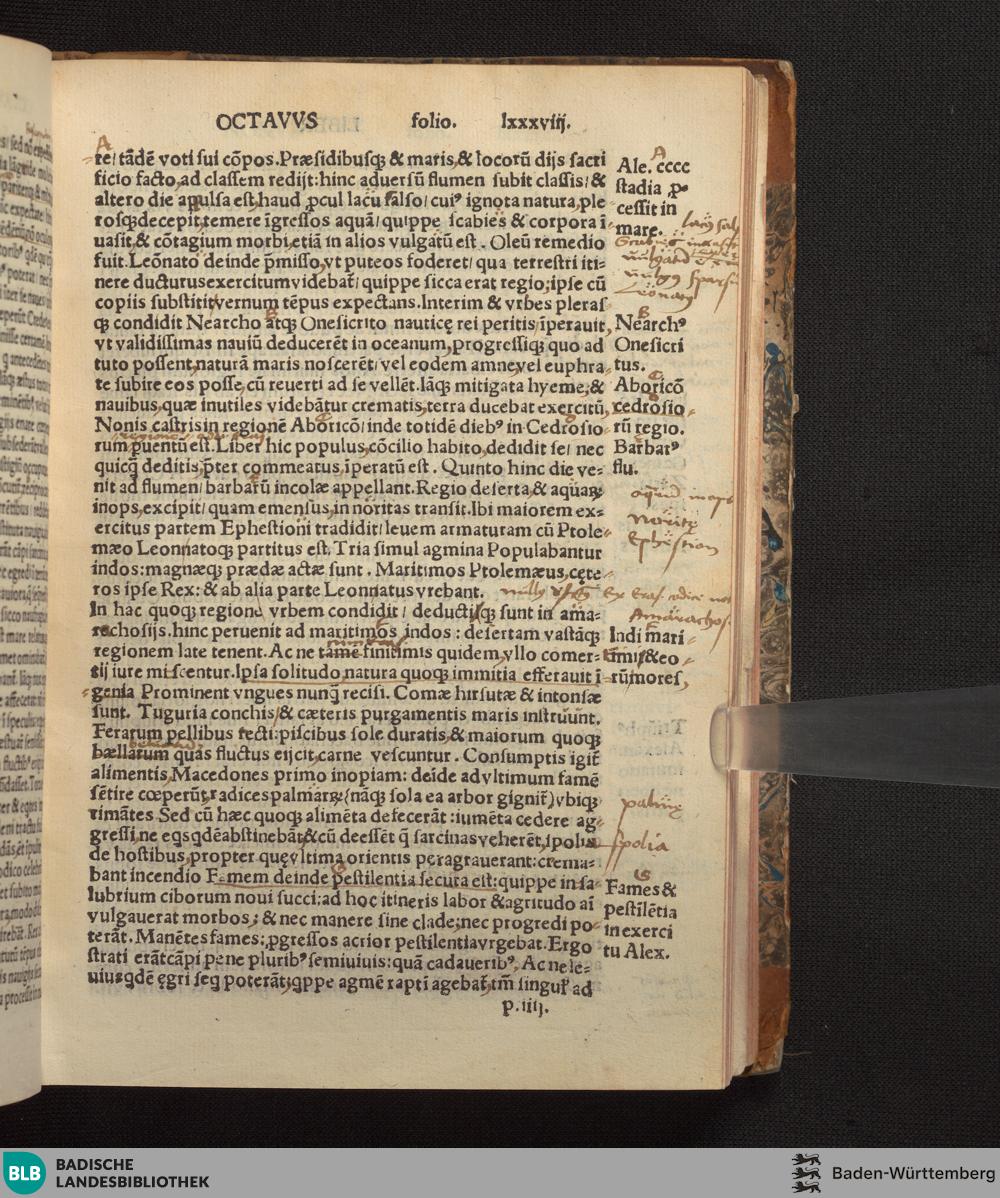 OCTAVVS folio. lxxxviij.
re/ tādē voti sui cōpos. Præsidibusq; & maris, & locorū dijs sacri
ficio facto, ad classem redijt: hinc aduersū flumen subit classis/ &
altero die apulsa est, haud ꝓcul lacu salso/ cui⁹ ignota natura, ple
rosq; decepit, temere īgressos aquā/ quippe scabies & corpora ī-
uasit, & cōtagium morbi, etiā in alios vulgatū est. Oleū remedio
fuit. Leōnato deinde p̄misso, vt puteos foderet/ qua terrestri iti-
nere ducturus exercitum videbat̄/ quippe sicca erat regio; ipse cū
copiis substitit, vernum tēpus expectans. Interim & vrbes pleras
q; condidit Nearcho atq; Onesicrito nauticę rei peritis, īperauit,
vt validissimas nauiū deducerēt in oceanum, progressiq; quo ad
tuto possent, naturā maris noscerēt/ vel eodem amne, vel euphra-
te subire eos posse, cū reuerti ad se vellēt. Iāq; mitigata hyeme, &
nauibus, quæ inutiles videbātur crematis, terra ducebat exercitū,
Nonis castris in regionē Aboricō/ inde totidē dieb⁹ in Cedrosio-
rum ꝑuentū est. Liber hic populus, cōcilio habito, dedidit se/ nec
quicq̄ deditis, p̄ter commeatus, īperatū est. Quinto hinc die ve-
nit ad flumen/ barbarū incolæ appellant. Regio deserta, & aquaꝝ
inops, excipit/ quam emensus, in noritas transit. Ibi maiorem ex-
ercitus partem Ephestioni tradidit/ leuem armaturam cū Ptole-
mæo Leonnatoq; partitus est. Tria simul agmina Populabantur
indos: magnæq; prædæ actæ sunt. Maritimos Ptolemæus, cęte-
ros ipse Rex: & ab alia parte Leonnatus vrebant.
In hac quoq; regione vrbem condidit/ deductiq; sunt in ama-
rachosijs. hinc peruenit ad maritimos indos: desertam vastāq;
regionem late tenent. Ac ne tamē finitimis quidem, vllo comer-
tij iure miscentur. Ipsa solitudo natura quoq; immitia efferauit ī-
genia Prominent vngues nunq̄ recisi. Comæ hirsutæ & intonsæ
sunt. Tuguria conchis/ & cæteris purgamentis maris instruunt.
Ferarum pellibus tecti: piscibus sole duratis, & maiorum quoq;
bællarum quas fluctus eijcit, carne vescuntur. Consumptis igit̄
alimentis, Macedones primo inopiam: deide ad vltimum famē
sētire cœperūt, radices palmarꝝ (nāq; sola ea arbor gignit̄) vbiq;
rimātes Sed cū hæc quoq; alimēta defecerāt: iumēta cedere ag-
gressi, ne eqs qdē abstinebāt, & cū deessēt q̄ sarcinas veherēt, spolia
de hostibus, propter quę vltima orientis peragrauerant: crema-
bant incendio Famem deinde pestilentia secuta est: quippe insa-
lubrium ciborum noui succi: ad hoc itineris labor & ægritudo aī
vulgauerat morbos; & nec manere sine clade, nec progredi po-
terāt. Manētes fames: ꝓgressos acrior pestilentia vrgebat. Ergo
strati erāt cāpi pene plurib⁹ semiuiuis: quā cadauerib⁹. Ac ne le-
uius qdē ęgri seq poterāt; qppe agmē raptī agebat̄, tm̄ singul̄ ad
p. iiij.
Ale. cccc
stadia ꝓ-
cessit in
mare.
Nearch⁹
Onesicri
tus.
Aboricō
cedrosio-
rū regio.
Barbar⁹
flu.
noritę
Ephestion
Indi mari
timi, & eo-
rū mores,
palmę
spolia
Fames &
pestilētia
in exerci
tu Alex.
BLB
BADISCHE
LANDESBIBLIOTHEK
Baden-Württemberg